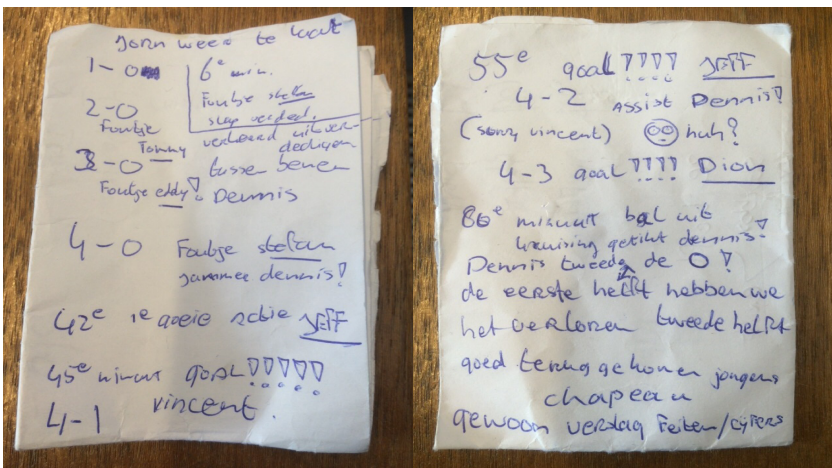 Jorn weer te laat
1-0
6e min.
Foutje stefan
slap verded.
2-0
Foutje
Tommy
verkeerd uitver-
dedigen
3-0 tussen benen
Foutje eddy! Dennis
4-0 Foutje stefan
jammer dennis!
42e 1e goeie actie JEFF
45e minuut goal!!!!!
4-1 vincent.
55e goal!!!! JEFF
4-2 assist Dennis!
(sorry vincent) huh?
4-3 goal!!!! Dion
86e minuut bal uit
kruising getikt dennis!
Dennis tweede de 0!
de eerste helft hebben we
het verloren tweede helft
goed terug gekomen jongens
chapeau
gewoon verslag Feiten/cijfers